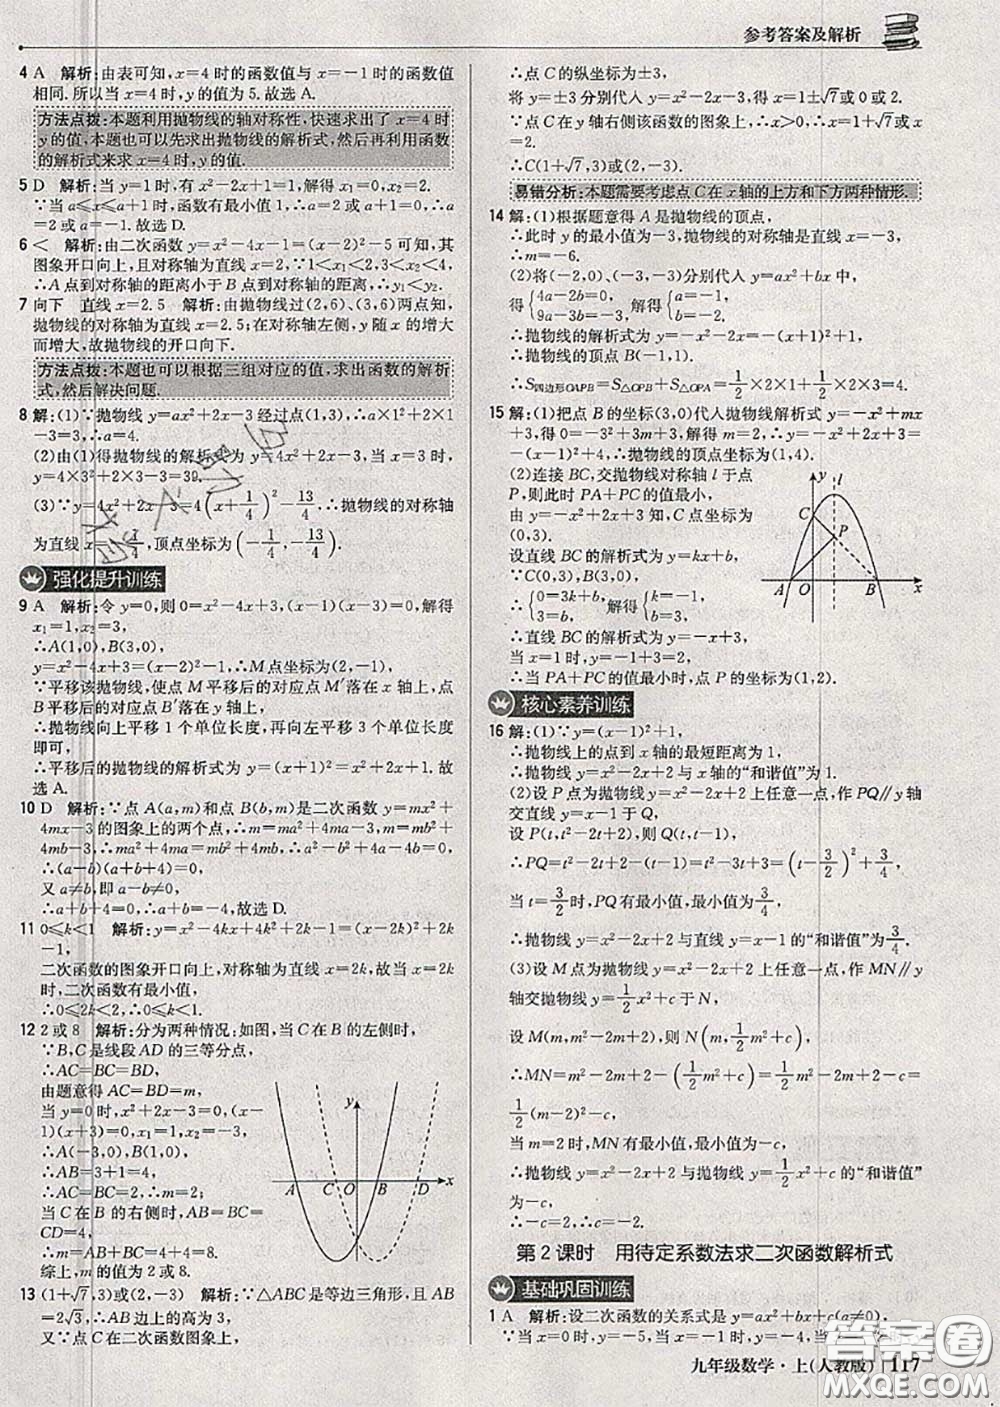 参考答案及解析
4 A 解析:由表可知,x=4时的函数值与x=-1时的函数值
相同.所以当x=4时,y的值为5.故选A.
方法点拨:本题利用抛物线的轴对称性,快速求出了x=4时
y的值.本题也可以先求出抛物线的解析式,然后再利用函数
的解析式来求x=4时,y的值.
5 D 解析:当y=1时,有x²-2x+1=1,解得x₁=0,x₂=2.
∵当a≤x≤a+1时,函数有最小值1,∴a=2或a+1=0,∴a
=2或a=-1.故选D.
6 < 解析:由二次函数y=x²-4x-1=(x-2)²-5可知,其
图象开口向上,且对称轴为直线x=2,∵1<x₁<2,3<x₂<4,
∴A点到对称轴的距离小于B点到对称轴的距离,∴y₁<y₂.
7 向下 直线x=2.5 解析:由抛物线过(2,6)、(3,6)两点知,
抛物线的对称轴为直线x=2.5;在对称轴左侧,y随x的增大
而增大,故抛物线的开口向下.
方法点拨:本题也可以根据三组对应的值,求出函数的解析
式,然后解决问题.
8 解:(1)∵抛物线y=ax²+2x-3经过点(1,3),∴a×1²+2×1
-3=3,∴a=4.
(2)由(1)得抛物线的解析式为y=4x²+2x-3,当x=3时,
y=4×3²+2×3-3=39.
(3)∵y=4x²+2x-3=4(x+1/4)²-13/4,∴抛物线的对称轴
为直线x=-1/4,顶点坐标为(-1/4,-13/4).
强化提升训练
9 A 解析:令y=0,则0=x²-4x+3,解得
x₁=1,x₂=3,
∴A(1,0),B(3,0).
y=x²-4x+3=(x-2)²-1,∴M点坐标为(2,-1).
∵平移该抛物线,使点M平移后的对应点M′落在x轴上,点
B平移后的对应点B′落在y轴上,
∴抛物线向上平移1个单位长度,再向左平移3个单位长度
即可,
∴平移后的抛物线的解析式为y=(x+1)²=x²+2x+1.故
选A.
10 D 解析:∵点A(a,m)和点B(b,m)是二次函数y=mx²+
4mx-3的图象上的两个点,∴m=ma²+4ma-3,m=mb²+
4mb-3,∴ma²+4ma=mb²+4mb,∴a²-b²+4a-4b=0,
∴(a-b)(a+b+4)=0,
又a≠b,即a-b≠0,
∴a+b+4=0,∴a+b=-4,故选D.
11 0≤k<1 解析:y=x²-4kx+4k²+2k-1=(x-2k)²+2k
-1,
二次函数的图象开口向上,对称轴为直线x=2k,故当x=2k
时,二次函数有最小值,
∴0≤2k<2,∴0≤k<1.
12 2或8 解析:分为两种情况:如图,当C在B的左侧时,
∵B,C是线段AD的三等分点,
∴AC=BC=BD,
由题意得AC=BD=m,
当y=0时,x²+2x-3=0,(x-
1)(x+3)=0,x₁=1,x₂=-3,
∴A(-3,0),B(1,0),
∴AB=3+1=4,
∴AC=BC=2,∴m=2,
当C在B的右侧时,AB=BC=
CD=4,
∴m=AB+BC=4+4=8.
综上,m的值为2或8.
y
A C O B D x
13 (1+√7,3)或(2,-3) 解析:∵△ABC是等边三角形,且AB
=2√3,∴AB边上的高为3,
又∵点C在二次函数图象上,
∴点C的纵坐标为±3,
将y=±3分别代入y=x²-2x-3,得x=1±√7或0或2.
∵点C在y轴右侧该函数的图象上,∴x>0,∴x=1+√7或x
=2.
∴C(1+√7,3)或(2,-3).
易错分析:本题需要考虑点C在x轴的上方和下方两种情形.
14 解:(1)根据题意得A是抛物线的顶点,
∴此时y的最小值为-3,抛物线的对称轴是直线x=-3,
∴m=-6.
(2)将(-2,0)、(-3,-3)分别代入y=ax²+bx中,
得{4a-2b=0, 9a-3b=-3, 解得{a=-1, b=-2.
∴抛物线的解析式为y=-x²-2x=-(x+1)²+1.
∴抛物线的顶点B(-1,1).
∴S四边形OAPB=S△OPB+S△OPA=1/2×2×1+1/2×2×3=4.
15 解:(1)把点B的坐标(3,0)代入抛物线解析式y=-x²+mx
+3,得0=-3²+3m+3,解得m=2,∴y=-x²+2x+3=
-(x-1)²+4,∴抛物线的顶点坐标为(1,4).
(2)连接BC,交抛物线对称轴l于点
P,则此时PA+PC的值最小,
由y=-x²+2x+3知,C点坐标为
(0,3).
设直线BC的解析式为y=kx+b,
∵C(0,3),B(3,0),
∴{0=3k+b, 3=b, 解得{k=-1, b=3.
∴直线BC的解析式为y=-x+3;
当x=1时,y=-1+3=2,
∴当PA+PC的值最小时,点P的坐标为(1,2).
y l
C P
A O B x
核心素养训练
16 解:(1)∵y=(x-1)²+1,
∴抛物线上的点到x轴的最短距离为1,
∴抛物线y=x²-2x+2与x轴的“和谐值”为1.
(2)设P点为抛物线y=x²-2x+2上任意一点,作PQ∥y轴
交直线y=x-1于Q,
设P(t,t²-2t+2),则Q(t,t-1),
∴PQ=t²-2t+2-(t-1)=t²-3t+3=(t-3/2)²+3/4,
当t=3/2时,PQ有最小值,最小值为3/4,
∴抛物线y=x²-2x+2与直线y=x-1的“和谐值”为3/4.
(3)设M点为抛物线y=x²-2x+2上任意一点,作MN∥y
轴交抛物线y=1/2x²+c于N,
设M(m,m²-2m+2),则N(m,1/2m²+c),
∴MN=m²-2m+2-(1/2m²+c)=1/2m²-2m+2-c=
1/2(m-2)²-c,
当m=2时,MN有最小值,最小值为-c,
∴抛物线y=x²-2x+2与抛物线y=1/2x²+c的“和谐值”
为-c,
∴-c=2,∴c=-2.
第2课时 用待定系数法求二次函数解析式
基础巩固训练
1 A 解析:设二次函数的关系式是y=ax²+bx+c(a≠0).
∵当x=0时,y=-5,当x=-1时,y=
九年级数学·上(人教版) 117
答案圈
MXQE.COM